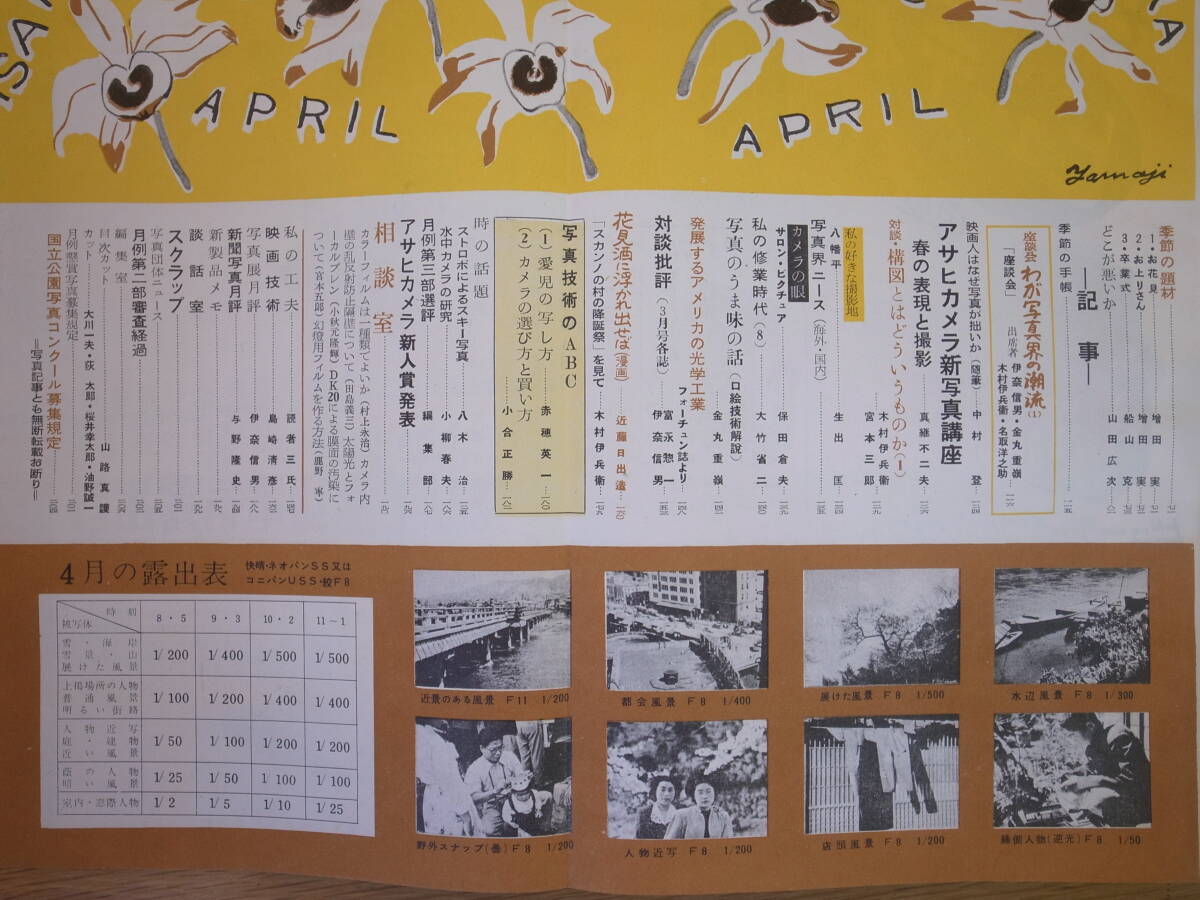 APRIL
APRIL
Yamaji
季節の題材
1・お花見……増田 実
2・お上りさん……増田 実
3・卒業式……船山 克
どこが悪いか……山田広次
―記 事―
季節の手帳
座談会 わが写真界の潮流(1)
「座談会」 出席者 伊奈信男・金丸重嶺
木村伊兵衛・名取洋之助
映画人はなぜ写真が拙いか(随筆)…中村 登
アサヒカメラ新写真講座
春の表現と撮影……真継不二夫
対談・構図とはどういうものか(1)…木村伊兵衛
宮本三郎
写真界ニュース(海外・国内)
私の好きな撮影地
八幡平……生出 匡
カメラの眼
サロン・ピクチュア……保田倉夫
私の修業時代(8)……大竹省二
写真のうま味の話(口絵技術解説)
発展するアメリカの光学工業……金丸重嶺
フォーチュン誌より
対談批評(3月号各誌)……富永惣一
伊奈信男
花見酒に浮かれ出せば(漫画)……近藤日出造
「スカンノの村の降誕祭」を見て……木村伊兵衛
写真技術のABC
(1)愛児の写し方……赤穂英一
(2)カメラの選び方と買い方……小合正勝
時の話題
ストロボによるスキー写真……八木 治
水中カメラの研究……小柳春夫
月例第三部選評……編集部
アサヒカメラ新人賞発表
相談室
カラーフィルムは一種類でよいか(村上永治)カメラ内
壁の乱反射防止隔壁について(田島義三)太陽光とフォ
ーカルプレン(小秋元隆輝)DK20による膜面の汚染に
ついて(宮本五郎)幻燈用フィルムを作る方法(鹿野 寧)
私の工夫……読者三氏
映画技術……島崎清彦
写真展月評……伊奈信男
新聞写真月評……与野隆史
新製品メモ
談話室
スクラップ
写真団体ニュース
月例第二部審査経過
編集室
目次カット……山路真護
カット……大川一夫・荻 太郎・桜井幸太郎・油野誠一
月例懸賞写真募集規定
国立公園写真コンクール募集規定
＝写真記事とも無断転載お断り＝
4月の露出表 快晴・ネオパンSS又は
コニパンUSS・絞F8
時刻 被写体 8・5 9・3 10・2 11～1
雪・海岸
雪景・山
展けた風景 1/200 1/400 1/500 1/500
上掲場所の人物
普通風景
明るい街路 1/100 1/200 1/400 1/400
人物近写
庭・建物
近い風景 1/50 1/100 1/200 1/200
蔭の人物
暗い風景 1/25 1/50 1/100 1/100
室内・窓際人物 1/2 1/5 1/10 1/25
近景のある風景 F11 1/200
都会風景 F8 1/400
展けた風景 F8 1/500
水辺風景 F8 1/300
野外スナップ(曇) F8 1/200
人物近写 F8 1/200
店頭風景 F8 1/200
縁側人物(逆光) F8 1/50